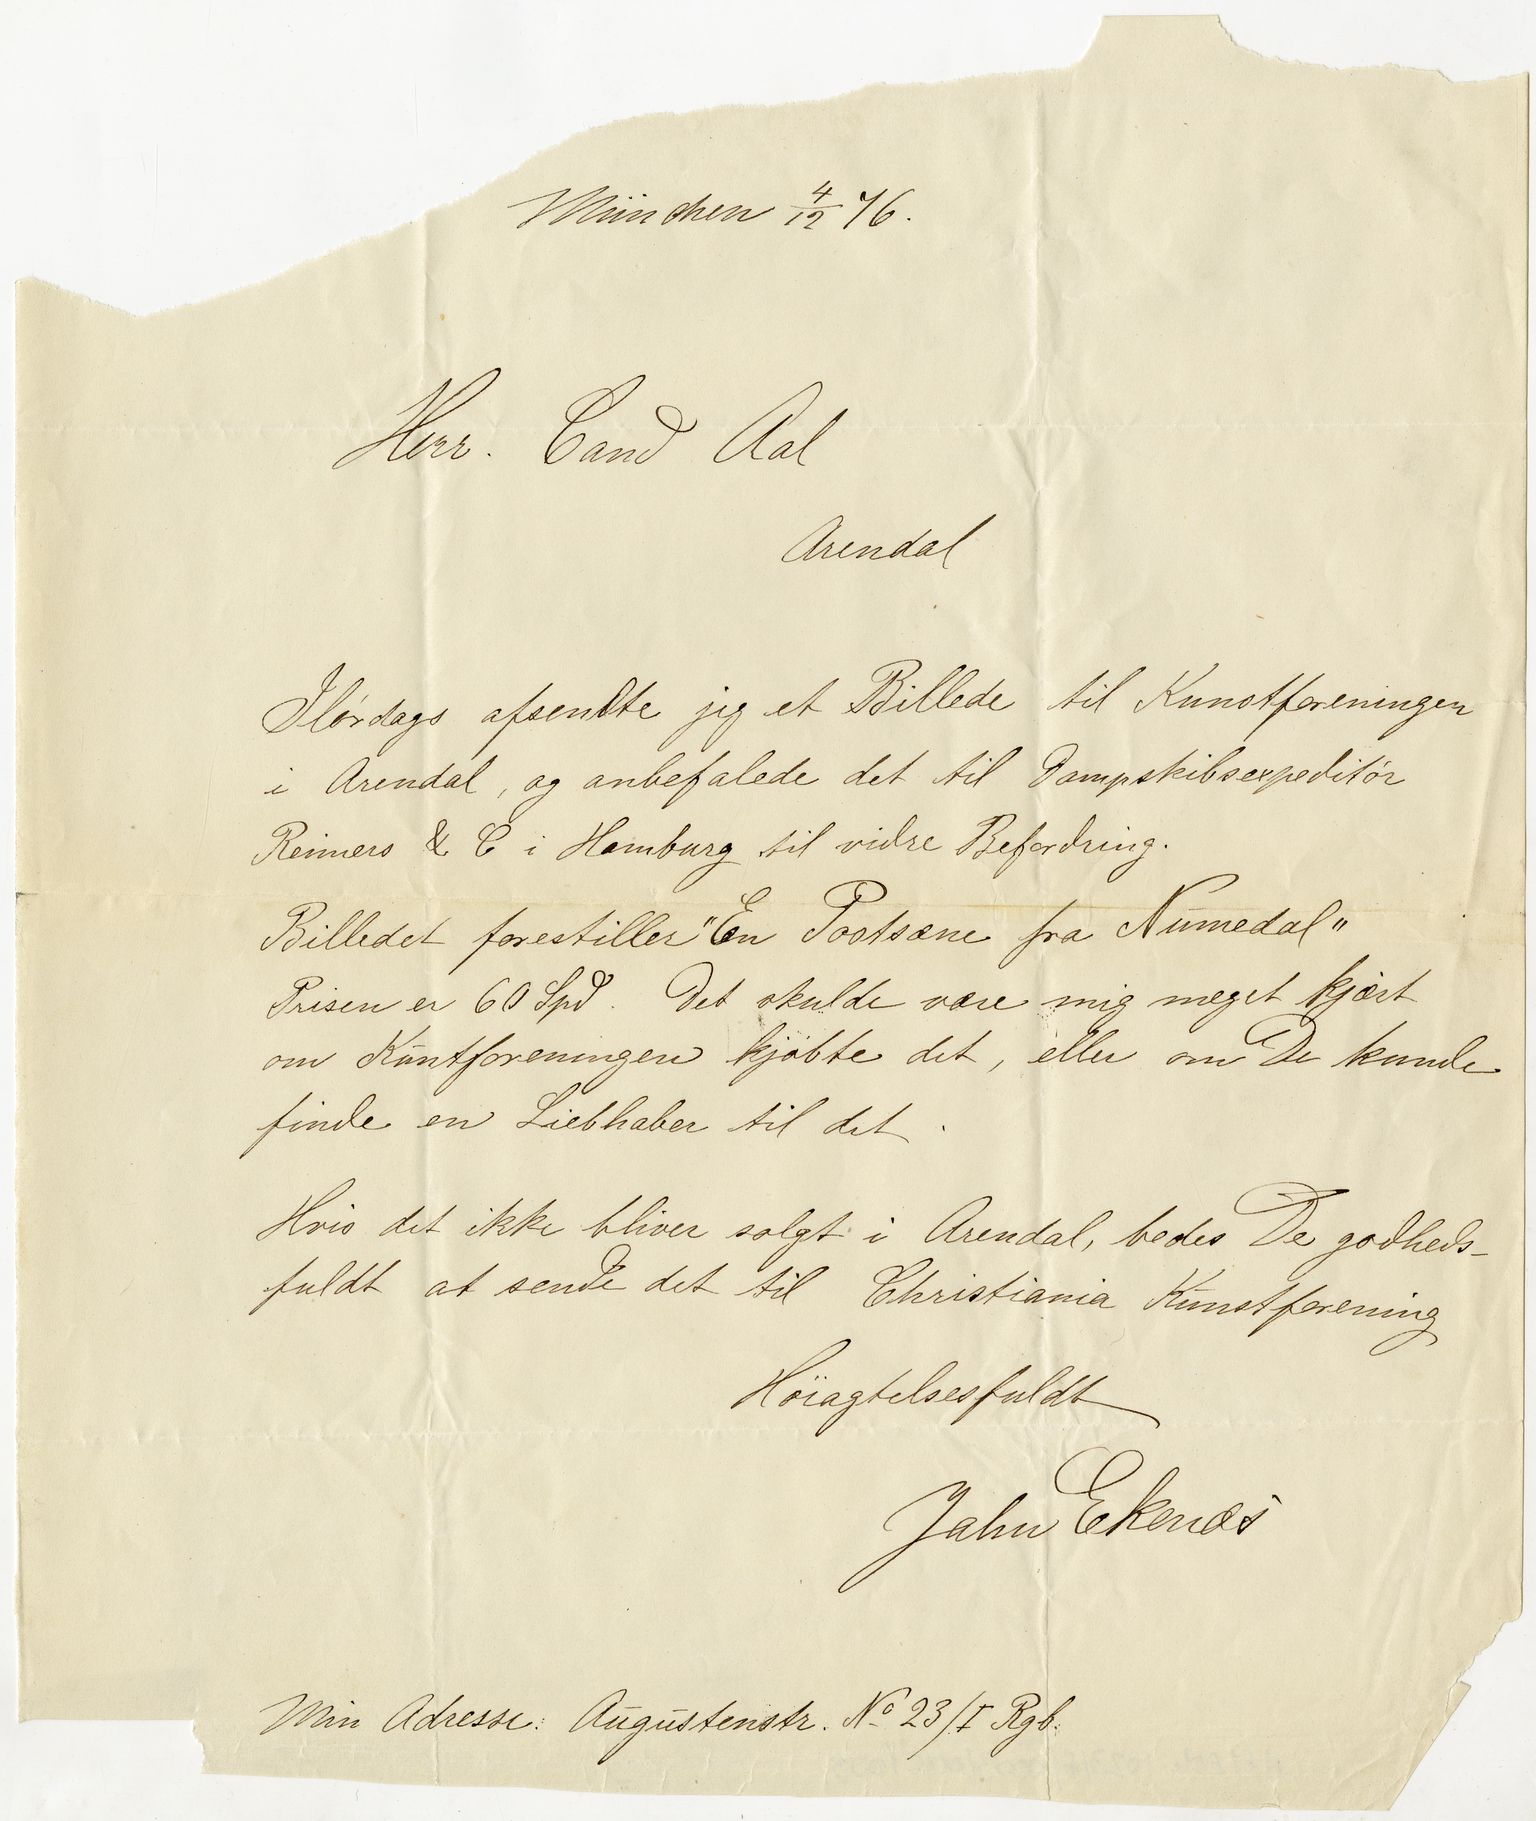 München 4/12 76.
Herr. Cand Aal
Arendal
Ilørdags afsendte jeg et Billede til Kunstforeningen
i Arendal, og anbefalede det til Dampskibsexpeditör
Reimers & C i Hamburg til vidre Befordring.
Billedet forestiller "En Postscene fra Numedal"
Prisen er 60 Spd. Det skulde være mig meget kjært
om Kuntforeningen kjöbte det, eller om De kunde
finde en Liebhaber til det.
Hvis det ikke bliver solgt i Arendal, bedes De godheds-
fuldt at sende det til Christiania Kunstforening
Höiagtelsesfuldt
Jahn Ekenæs
Min Adresse: Augustenstr. No 23/I Rgb.